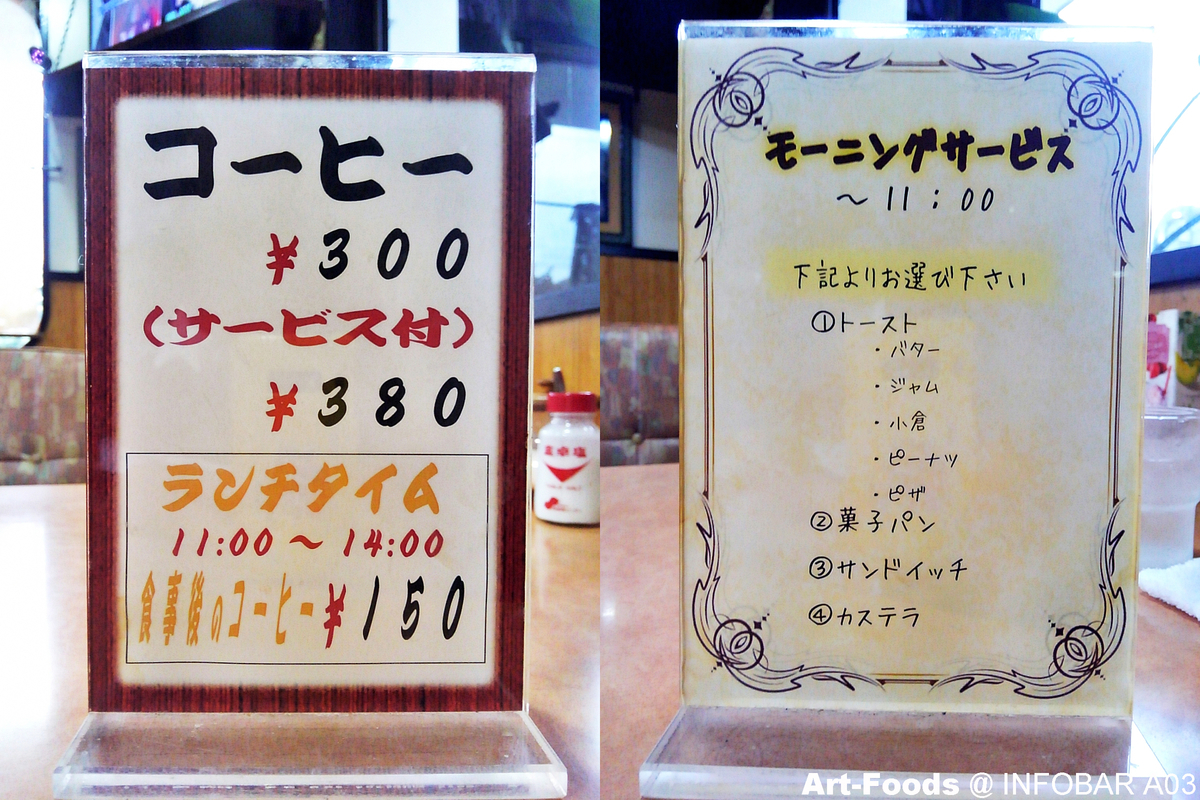 コーヒー
¥300
(サービス付)
¥380
ランチタイム
11:00～14:00
食事後のコーヒー¥150
食卓塩
モーニングサービス
～11:00
下記よりお選び下さい
①トースト
・バター
・ジャム
・小倉
・ピーナツ
・ピザ
②菓子パン
③サンドイッチ
④カステラ
Art-Foods @ INFOBAR A03